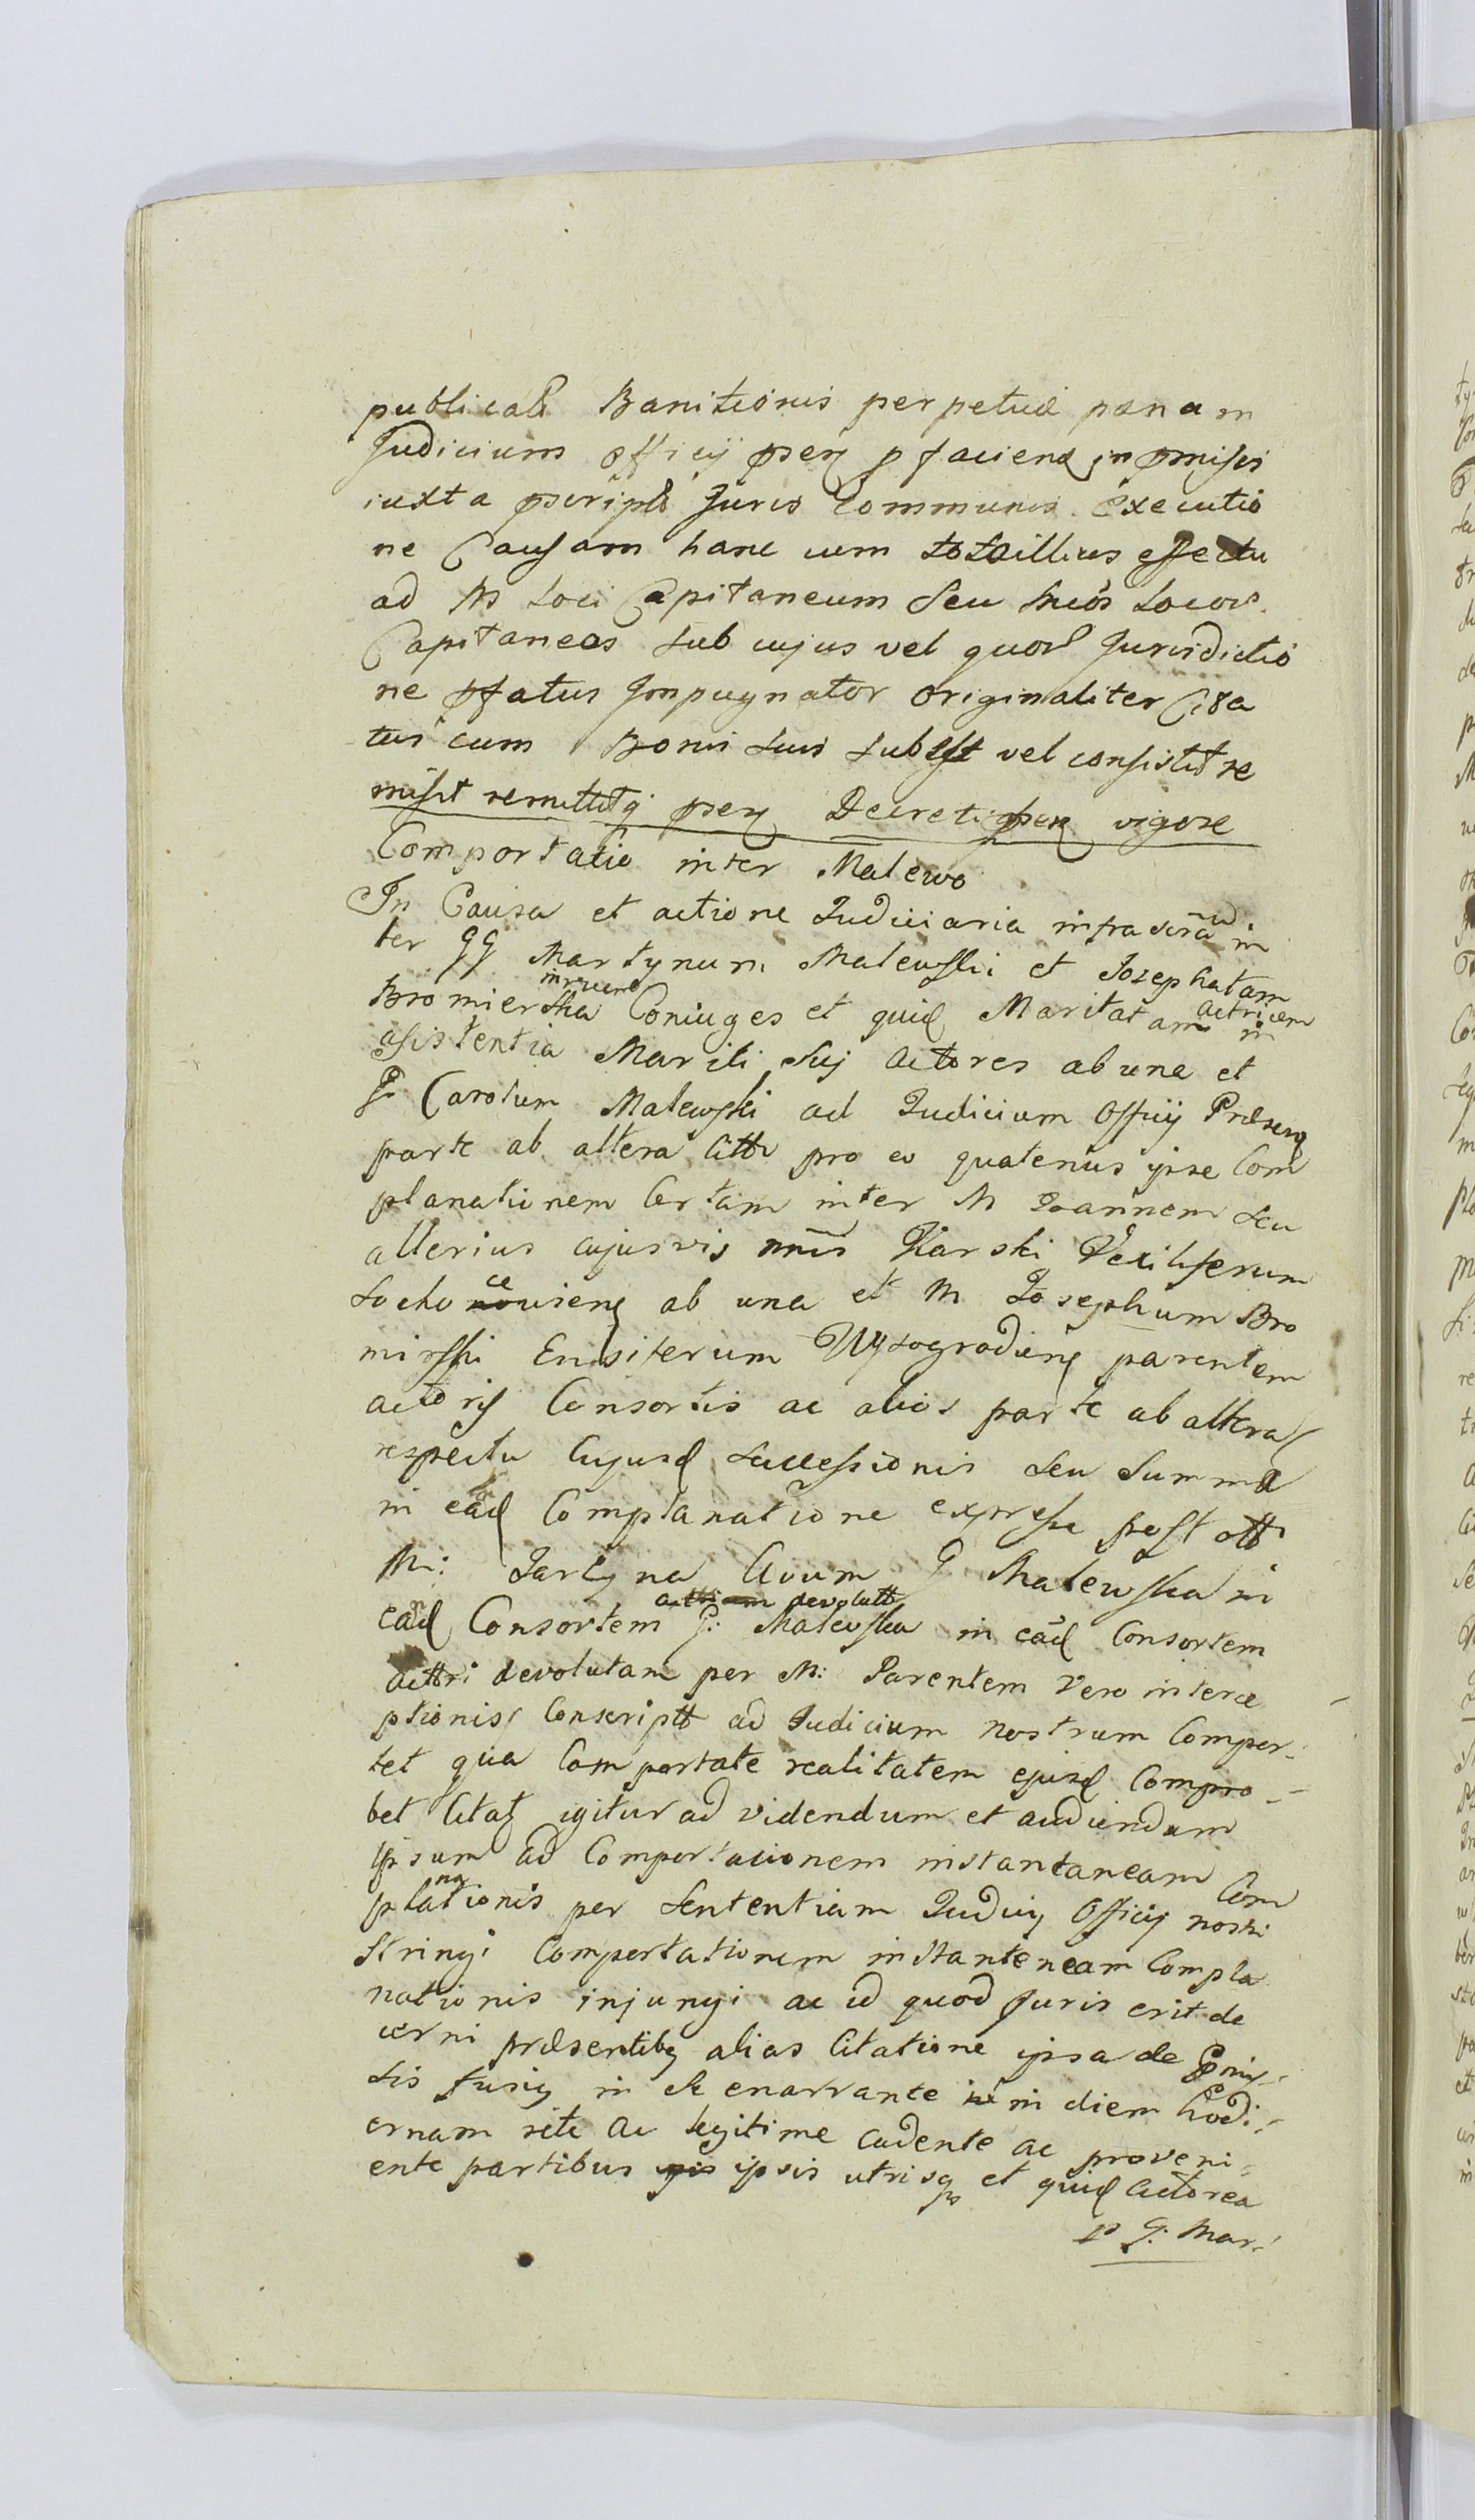 publicatā Banitionis perpetuæ pænam
Judicium officij pseq p faciend in pmisis
iuxta pscriptā Juris Communis Executio
ne Causam hanc cum toto illius effectu
ad M Loci Capitaneum seu Locor
Capitaneos sub cujus vel quor Jurisdictio
ne pfatus Impugnator originaliter Cita
tus cum Bonis suis subest vel consistit re
misit remittitq pseq Decreti psen vigore
Comportatio inter Malewo
In Causa et actione Judiciaria infrascra in
ter GG Martynum Malewski et Josephatam
Bromierska Coniuges et quid Maritatam actricem in
asistentia Mariti sui actores ab una et
G Carolum Malewski ad Judicium Officij Præsens
parte ab altera Citt pro eo quatenus ipse Com
planationem Certam inter M Joannem seu
alterius cujusvis nnis Karski Vexiliferum
Sochoceviens ab una et M Josephum Bro
mirski Ensiferum Wysogrodiens parentem
actoris Consortis ac alios parte ab altera
respectu Cujusd successionis seu Summæ
in ead Complanatione expresse post ott
M: Avum G Malewska in
ead Consortem G: Malewska in ead Consortem
acttri devolutam per M: Parentem Vero interce
ptionis Conscriptt ad Judicium nostrum Compor-
tet qua Comportate realitatem ejusd Compro-
bet Citat igitur ad videndum et audiendum
ipsum ad Comportationem instantaneam Com
plationis per Sententiam Judicij Officij nostri
stringi Comportationem instanteneam Compla
nationis injungi ac id quod Juris erit de
cerni præsentibq alias Citatione ipsa de Pmis-
sis fusiq in se enarrante in diem hodi-
ernam rite ac legitime cadente ac proveni-
ente partibus ipsis utrisq et quid Actorea
G: Mar-